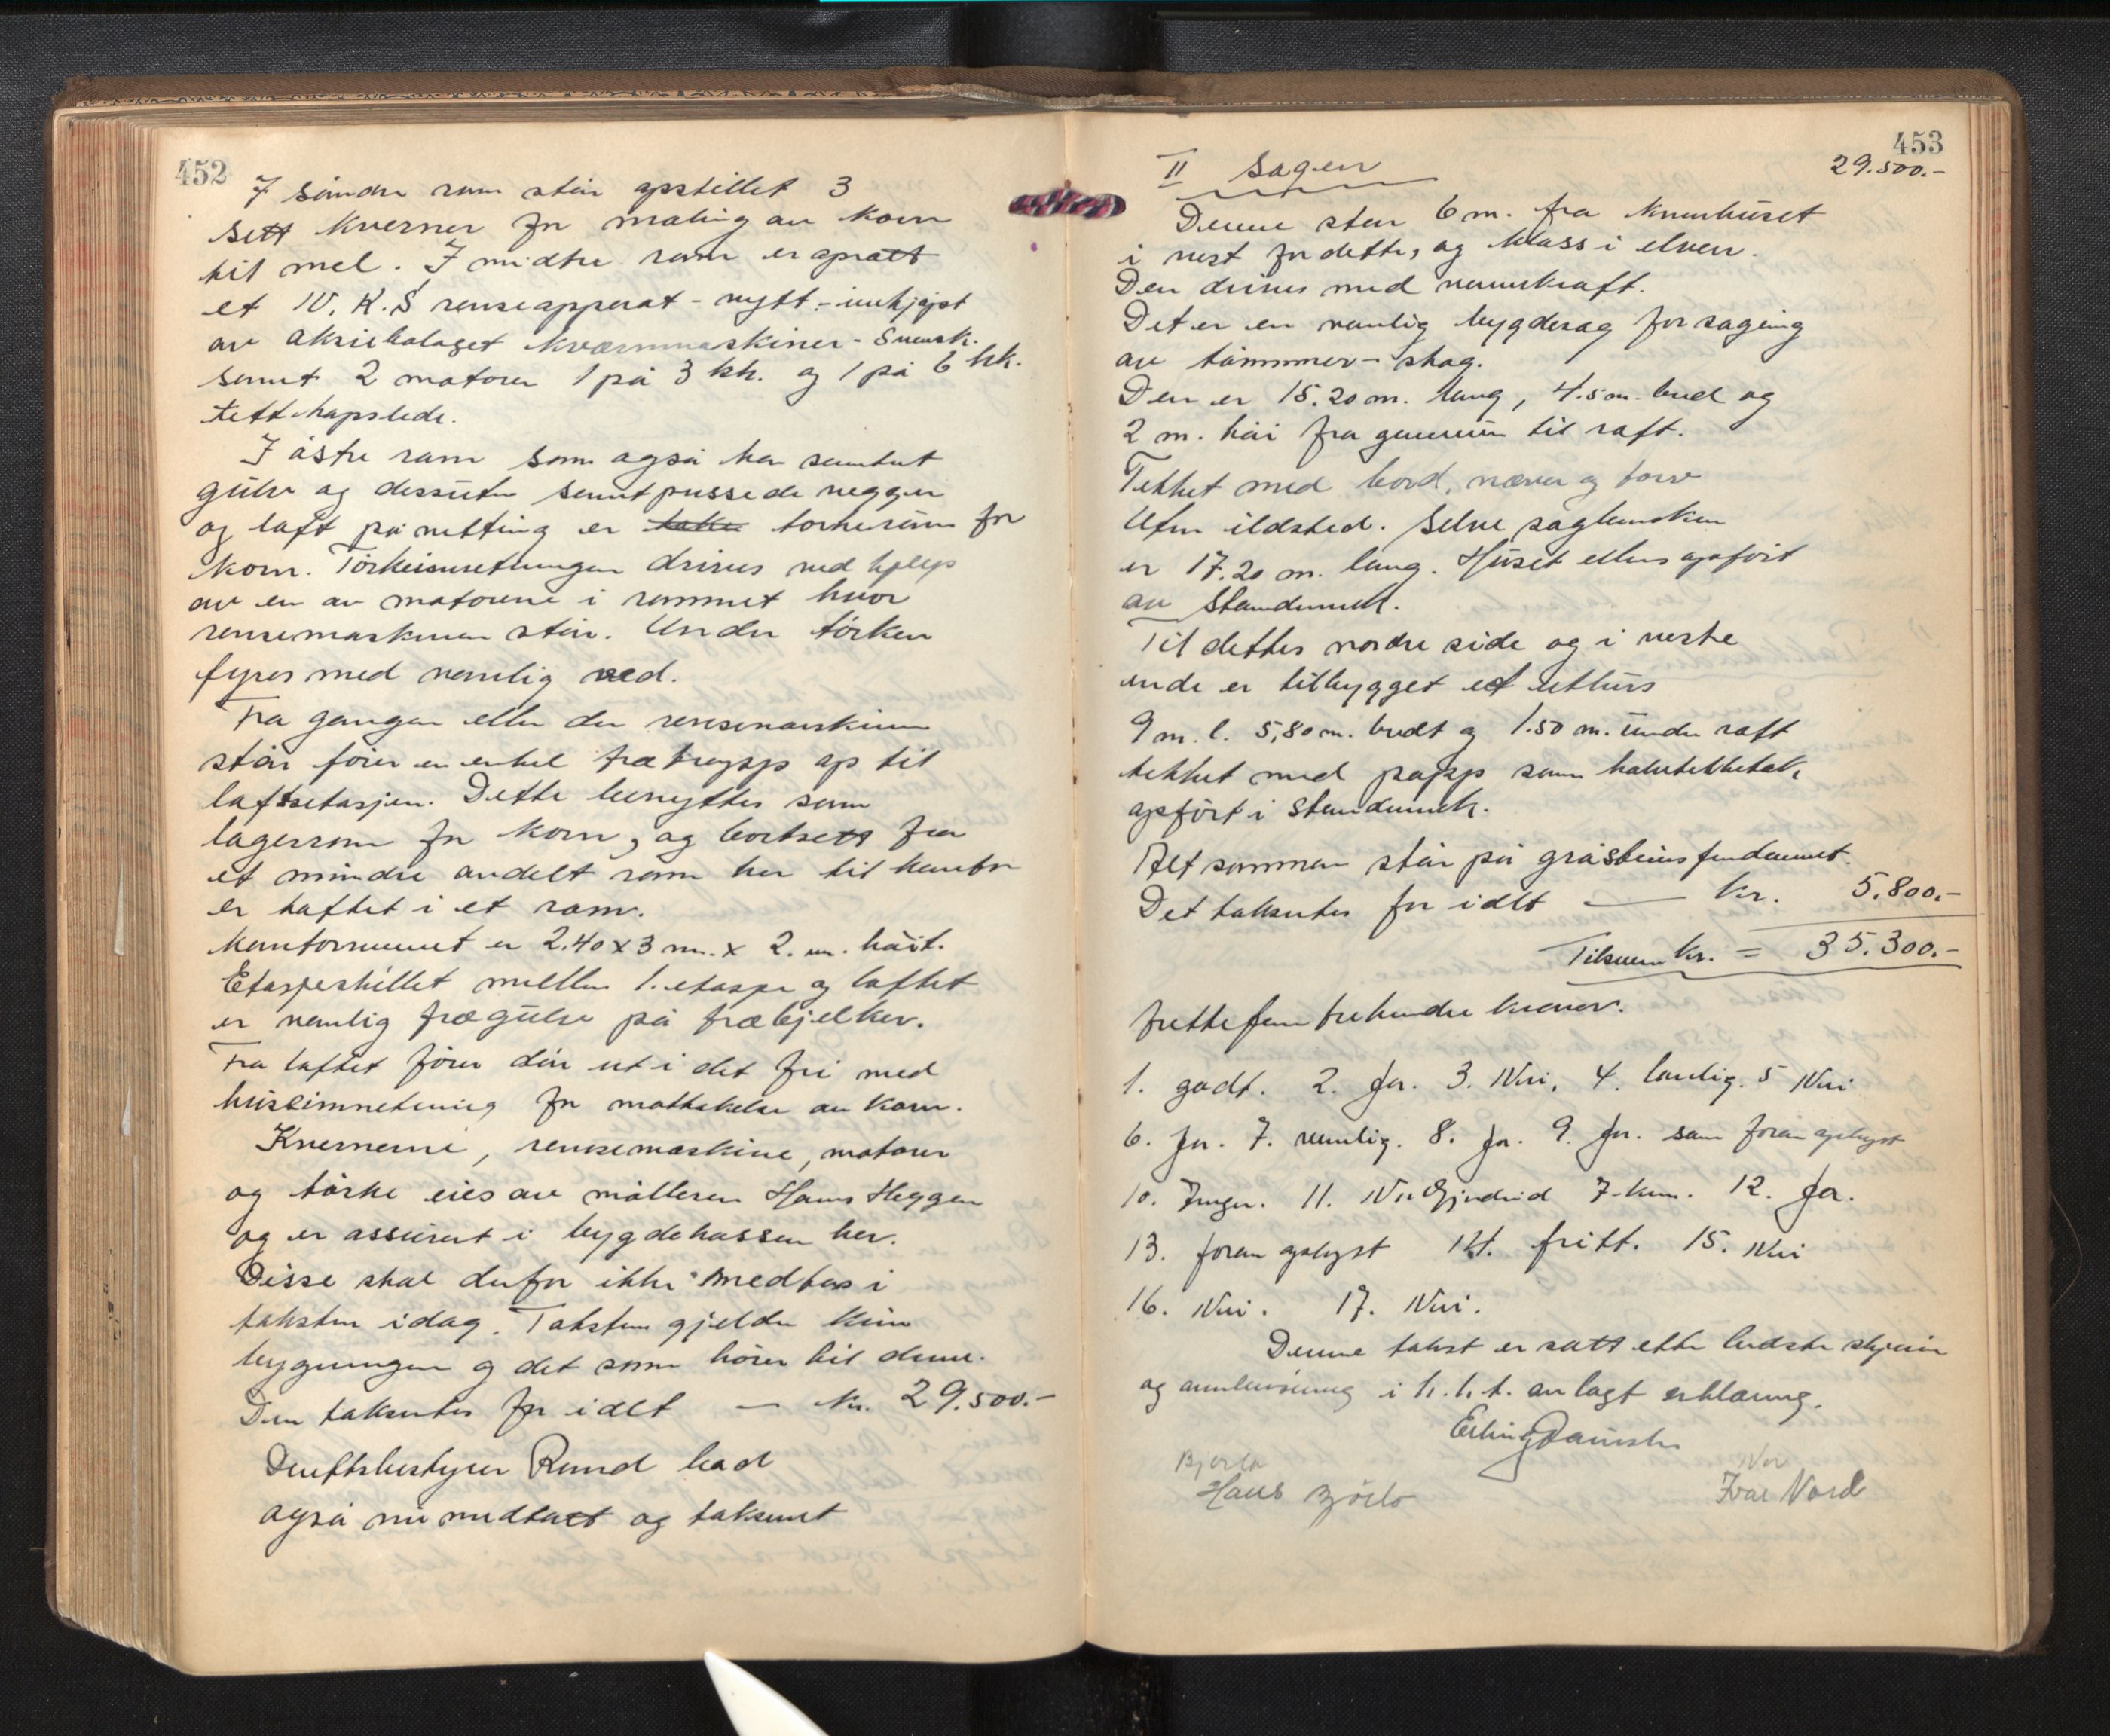 452
I søndre rom står opstillet 3
sett kverner for maling av korn
til mel. I midtre rom er opsatt
et N. K. S renseapparat - nytt - innkjøpt
av aksiebolaget kvarnmaskiner - Svensk.
samt 2 motorer 1 på 3 hk. og 1 på 6 hk.
tett kapslede.
I østre rom som også har sementert
gulv og dessuten sementpussede vegger
og loft på netting er torkerum for
korn. Tørkeinnretningen drives ved hjelp
av en av motorene i rommet hvor
rensemaskinen står. Under tørken
fyres med vanlig ved.
Fra gangen eller der rensemaskinen
står fører en enkel trætrapp op til
loftsetasjen. Dette benyttes som
lagerrom for korn, og bortsett fra
et mindre avdelt rom her til kontor
er loftet i et rom.
Kontorrummet er 2.40 x 3 m. x 2. m. høit.
Etasjeskillet mellem 1. etasje og loftet
er vanlig trægulv på træbjelker.
Fra loftet fører dør ut i det fri med
heiseinnretning for mottakelse av korn.
Kvernerne, rensemaskine, motorer
og tørke eies av mølleren Hans Heggen
og er assurert i bygdekassen her.
Disse skal derfor ikke medtas i
taksten idag. Taksten gjelder kun
bygningen og det som hører til denne.
Den taksertes for idet — Kr. 29.500.-
Driftsbestyrer Rund bad
også nu medtatt og taksert
453
29.500.-
II Sagen
Denne står 6 m. fra kvernhuset
i vest for dette, og klass i elven.
Den drives med vannkraft.
Det er en vanlig bygdesag for saging
av tømmer - skog.
Den er 15.20 m. lang, 4.5 m. bred og
2 m. høi fra grunnen til raft.
Tekket med bord, næver og torv
Uten ildsted. Selve sagbenken
er 17.20 m. lang. Huset ellers opført
av standerverk.
Til dettes nordre side og i vestre
ende er tilbygget et uthus
9 m. l. 5,80 m. bredt og 1.50 m. under raft
tekket med papp som halvtekketak,
opført i standerverk.
Alt sammen står på gråsteinsfundament.
Det taksertes for idet — kr. 5.800.-
Tilsammen kr. = 35.300.-
trettifem trehundre kroner.
1. godt. 2. Ja. 3. Nei. 4. landlig. 5 Nei
6. Ja. 7. vanlig. 8. Ja. 9. Ja. som foran oplyst
10. Ingen. 11. Nei 7 km. 12. Ja.
13. foran oplyst 14. fritt. 15. Nei
16. Nei. 17. Nei.
Denne takst er satt efter bedste skjønn
og overbevisning i h. h. t. avlagt erklæring.
Hans Bjørlo
Ivar Nord